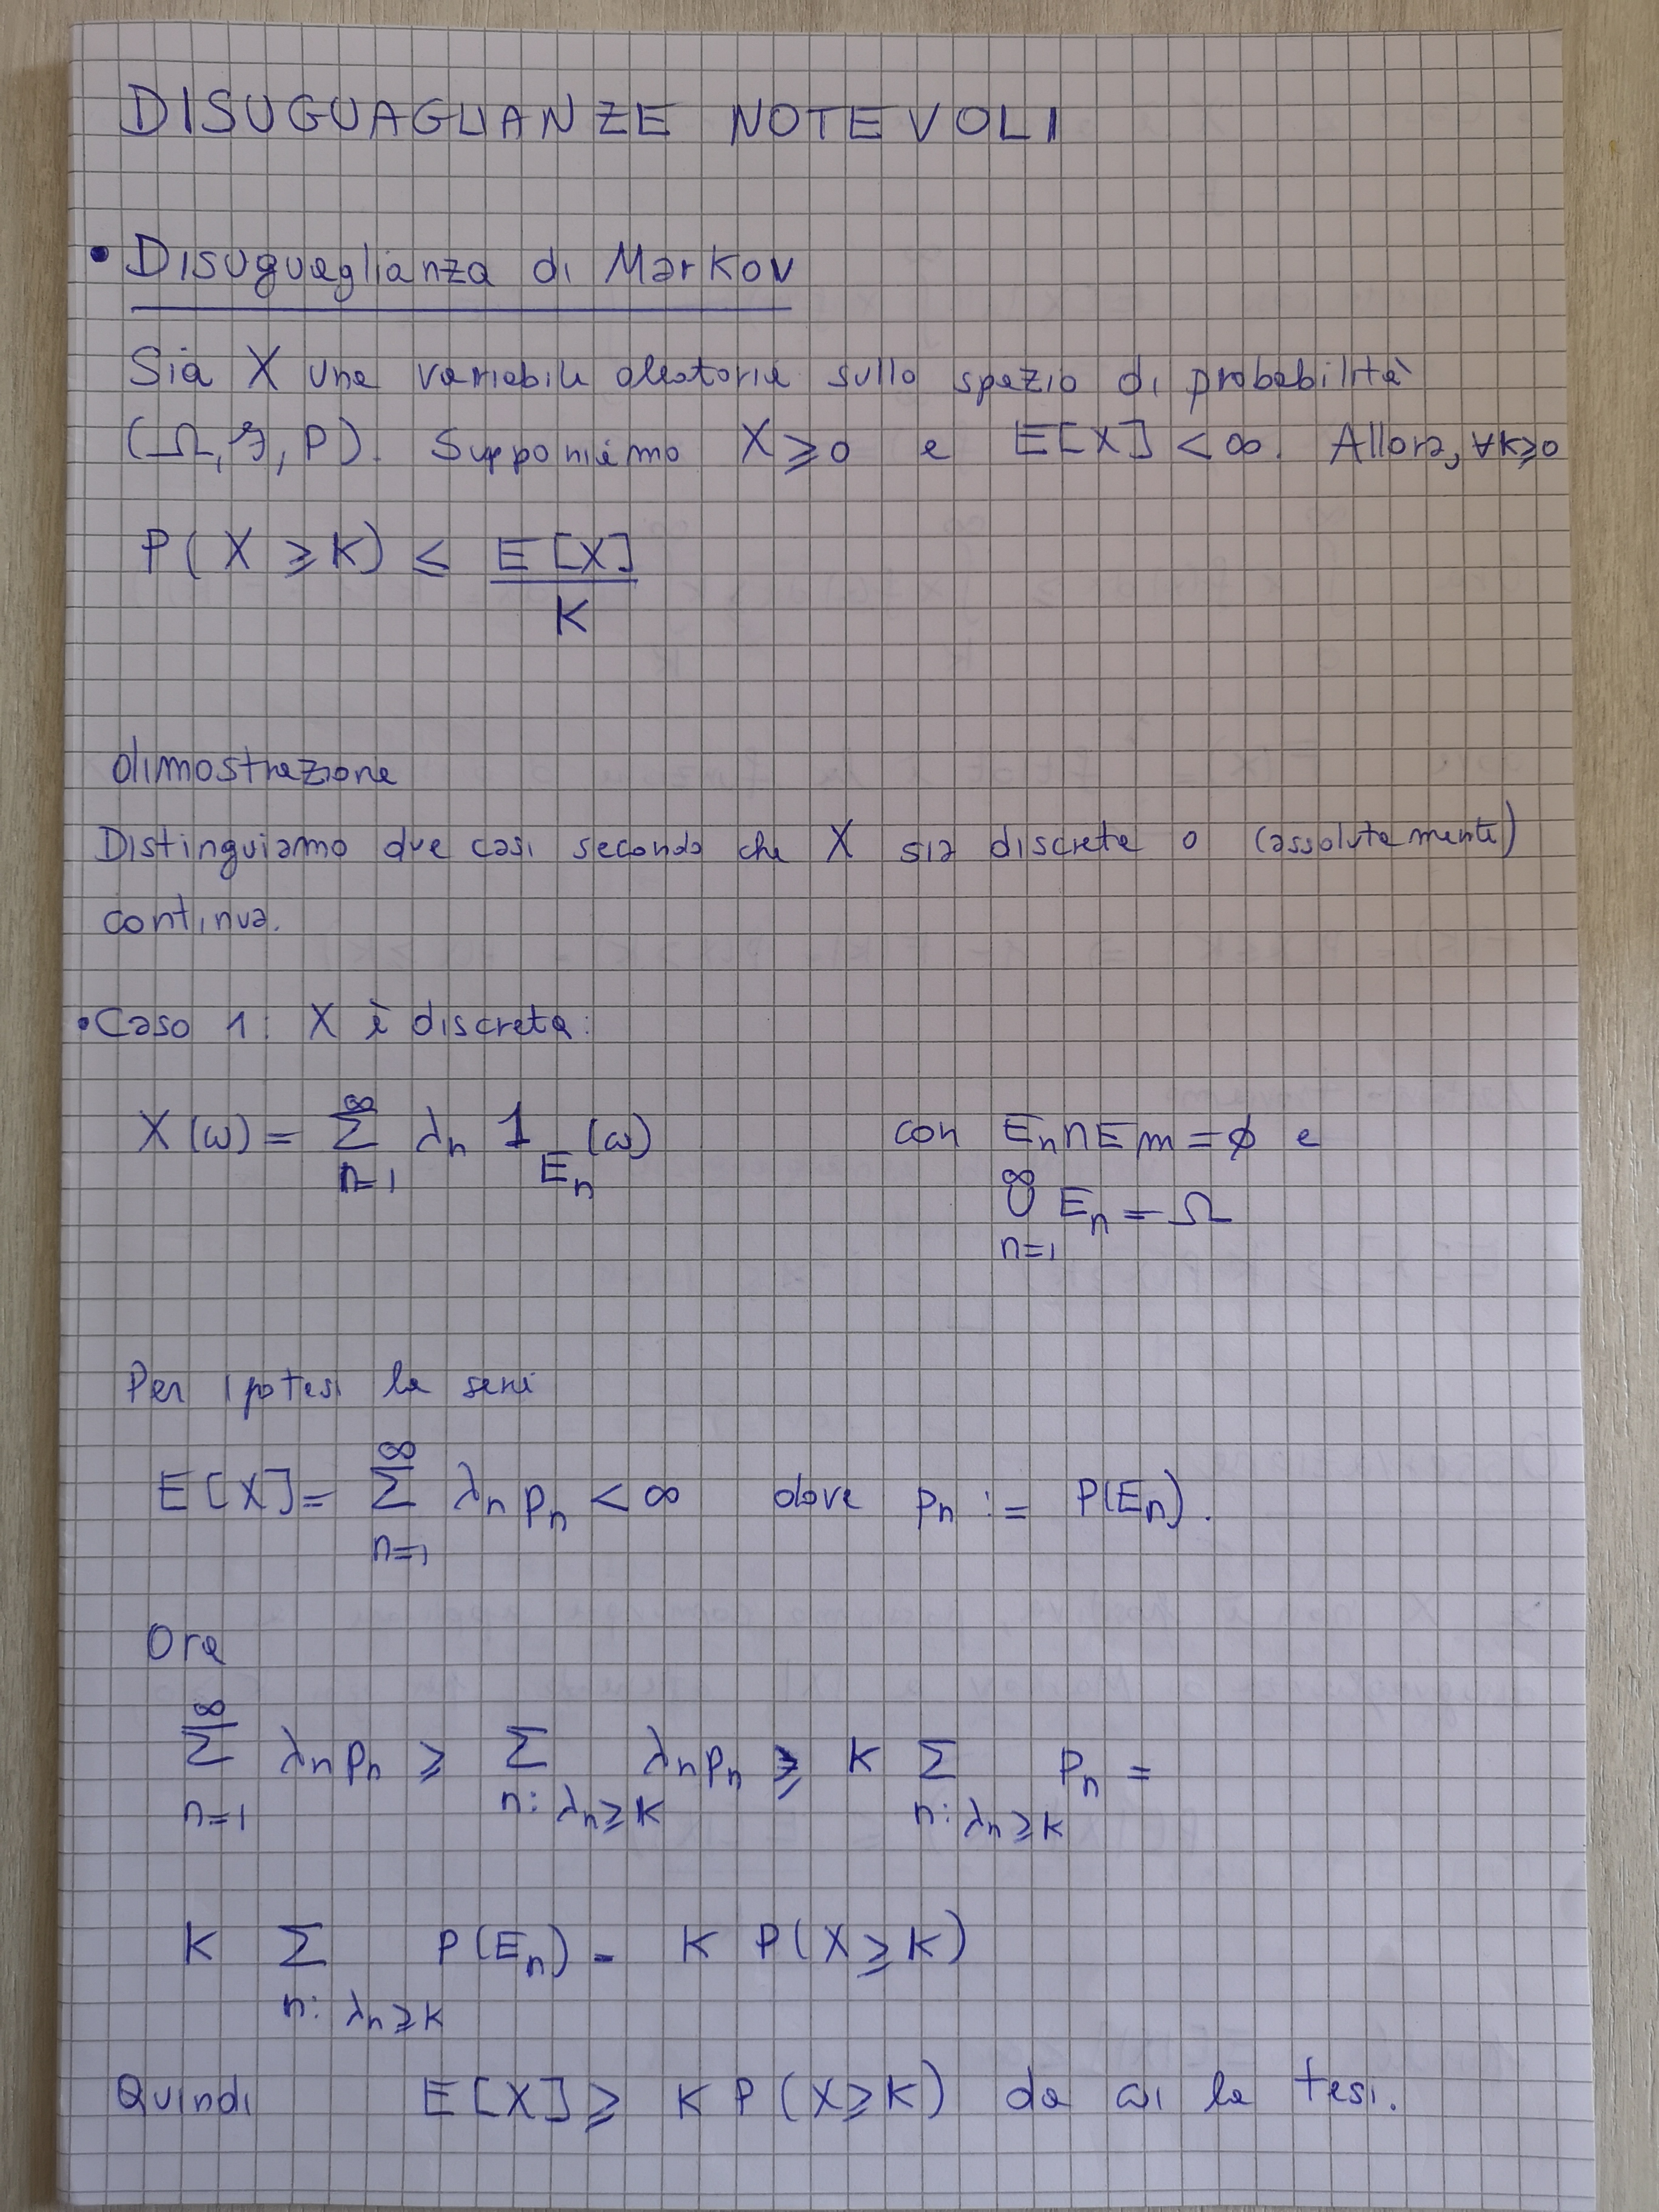 DISUGUAGLIANZE NOTEVOLI
• Disuguaglianza di Markov
Sia X una variabile aleatoria sullo spazio di probabilità
(Ω, ℱ, P). Supponiamo X ⩾ 0 e E[X] < ∞. Allora, ∀K⩾0
P(X ⩾ K) ≤ E[X] / K
dimostrazione
Distinguiamo due casi secondo che X sia discreta o (assolutamente)
continua.
• Caso 1: X è discreta:
X(ω) = ∑_{n=1}^{∞} λn 1_{En}(ω) con En ∩ Em = ∅ e
⋃_{n=1}^{∞} En = Ω
Per ipotesi la serie
E[X] = ∑_{n=1}^{∞} λn pn < ∞ dove pn := P(En).
Ora
∑_{n=1}^{∞} λn pn ⩾ ∑_{n: λn⩾K} λn pn ⩾ K ∑_{n: λn⩾K} Pn =
K ∑_{n: λn⩾K} P(En) = K P(X⩾K)
Quindi E[X] ⩾ K P(X⩾K) da cui la tesi.